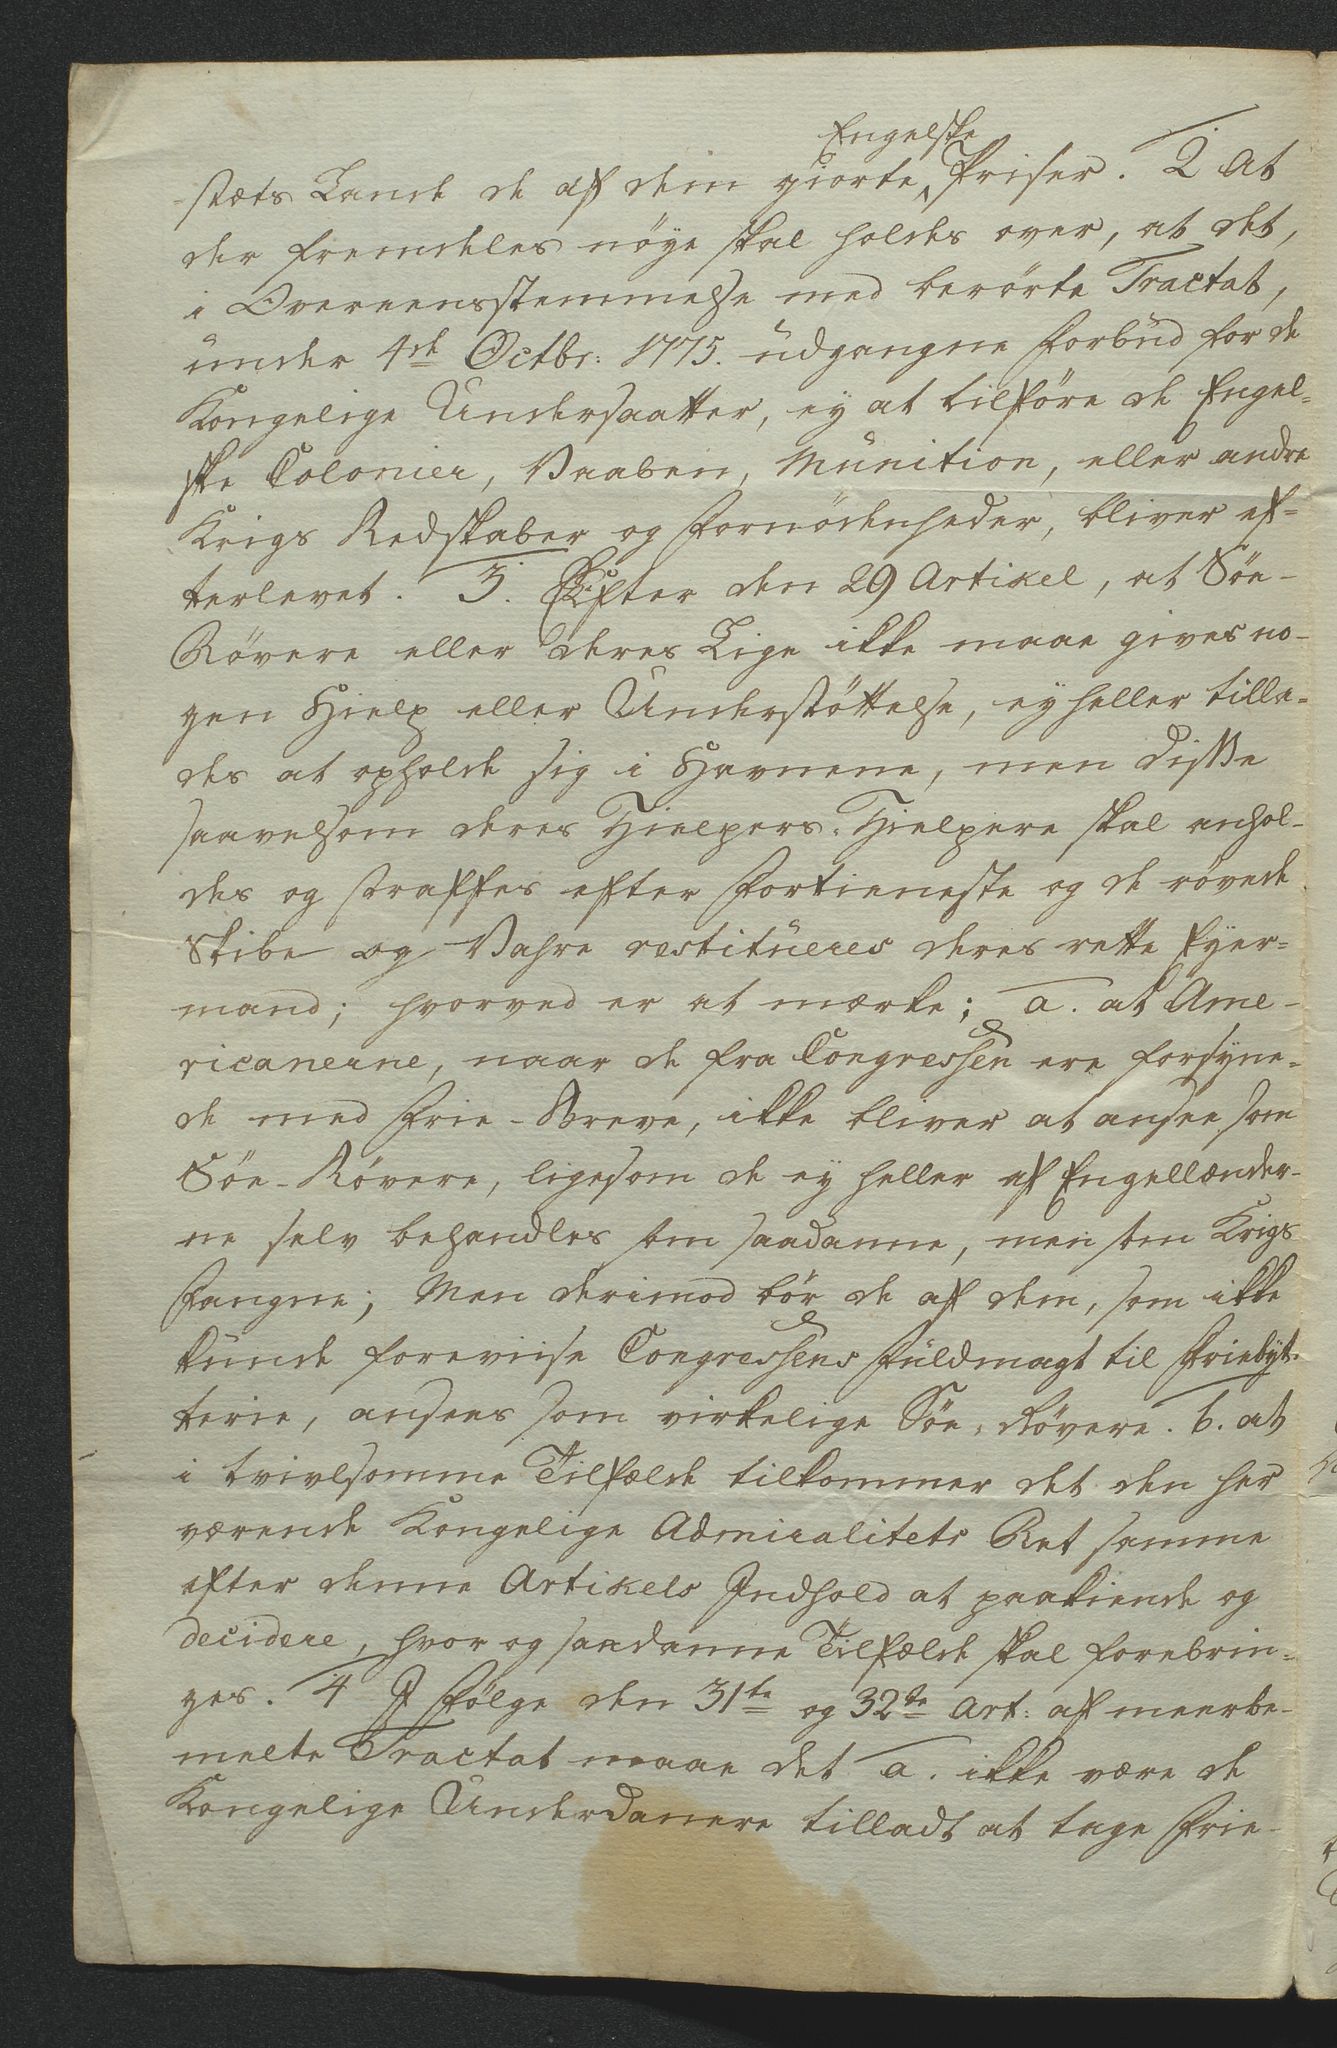 Engelske
stæts Lande de af dem giorte Priser. 2 At
der fremdeles nöye skal holdes over, at det,
i Overeensstemmelse med berörte Tractat,
under 4de Octbr: 1775. udgangne Forbud for de
Kongelige Undersaatter, ey at tilföre de Engel-
ske Colonier, Vaaben, Munition, eller andre
Krigs Redskaber og Fornödenheder, bliver ef-
terlevet. 3. Efter den 29 Artikel, at Söe-
Rövere eller deres Lige ikke maae gives no-
gen Hielp eller Understöttelse, ey heller tilla-
des at opholde sig i Havnene, men disse
saavelsom deres Hielpers-Hielpere skal anhol-
des og straffes efter Fortieneste og de rövede
Skibe og Vahre restitueres deres rette Eyer-
mand; hvorved er at mærke; a. at Ame-
ricanerne, naar de fra Congressen ere forsyne-
de med Frie-Breve, ikke bliver at ansee som
Söe-Rövere, ligesom de ey heller af Engellænder-
ne selv behandles som saadanne, men som Krigs
Fangne; Men derimod bör de af dem, som ikke
kunde foreviise Congressens Fuldmagt til Friebyt-
terie, ansees som virkelige Söe-Rövere. b. at
i tvivlsomme Tilfælde tilkommer det den her
værende Kongelige Admiralitets Ret samme
efter denne Artikels Indhold at paakiende og
decidere, hvor og saadanne Tilfælde skal forebrin-
ges. 4 I Fölge den 31te og 32te Art: af meerbe-
melte Tractat maae det a. ikke være de
Kongelige Underdanere tilladt at tage Frie-